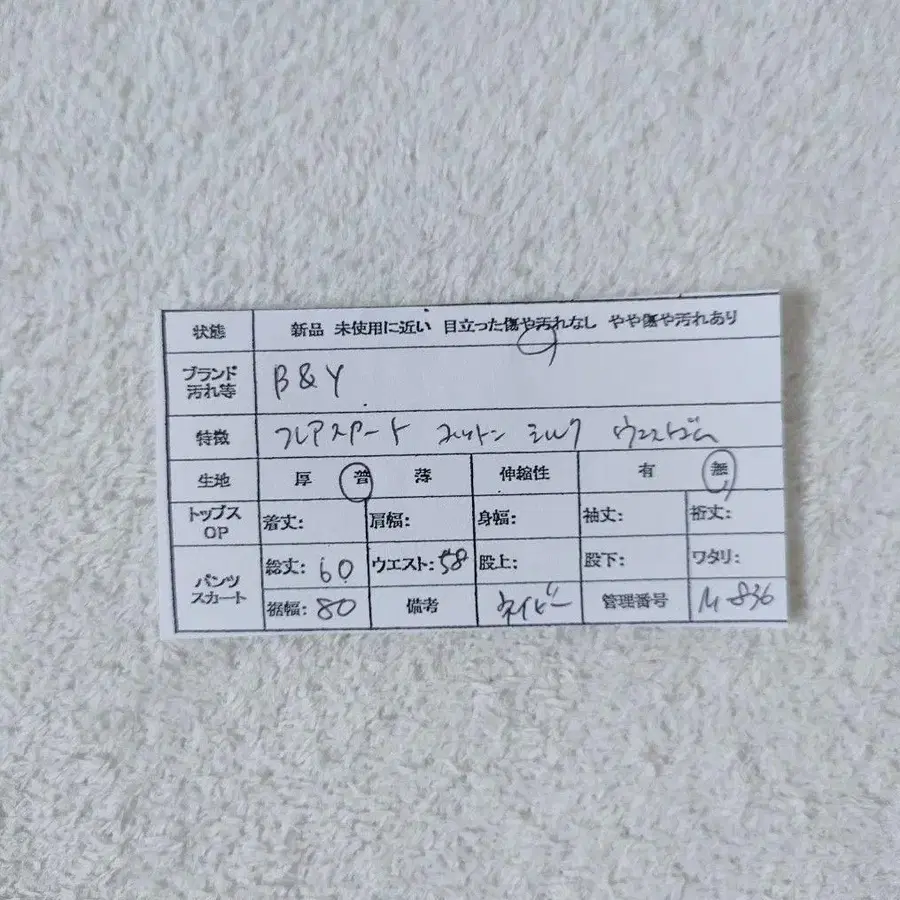 状態 新品 未使用に近い 目立った傷や汚れなし やや傷や汚れあり
ブランド
汚れ等 B&Y
特徴 フレアスカート コットン シルク ウエストゴム
生地 厚 普 薄 伸縮性 有 無
トップス
OP 着丈: 肩幅: 身幅: 袖丈: 裄丈:
パンツ
スカート 総丈: 60 ウエスト: 58 股上: 股下: ワタリ:
裾幅: 80 備考 ネイビー 管理番号 M-836